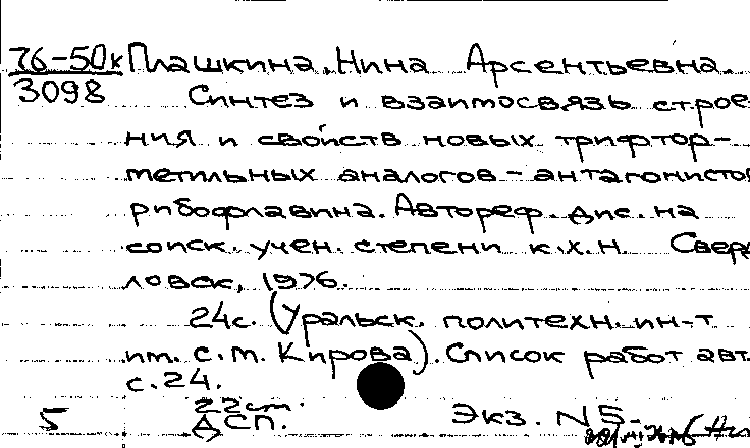 76-50к Плашкина, Нина Арсентьевна.
3098 Синтез и взаимосвязь строе
ния и свойств новых трифтор-
метильных аналогов-антагонистов
рибофлавина. Автореф. дис. на
соиск. учен. степени к.х.н. Сверд
ловск, 1976.
24с. (Уральск. политехн. ин-т
им. С.М. Кирова). Список работ авт.
с.24.
22см.
5 ДСП. Экз. N5